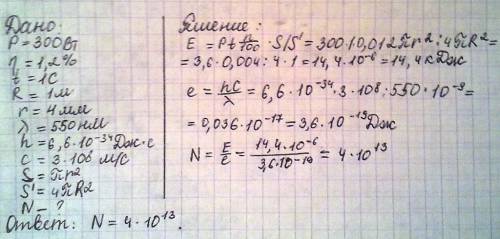 Дано:
P = 300 Вт
η = 1,2%
t = 1с
R = 1м
r = 4 мм
λ = 550 нм
h = 6,6·10⁻³⁴ Дж·с
c = 3·10⁸ м/с
S = πr²
S' = 4πR²
N - ?
Решение:
E = Pt η/100 · S/S' = 300·1·0,012 πr² : 4πR² =
= 3,6·0,004 : 4·1 = 14,4·10⁻⁶ = 14,4 кДж
e = hc/λ = 6,6·10⁻³⁴·3·10⁸ : 550·10⁻⁹ =
= 0,036·10⁻¹⁷ = 3,6·10⁻¹⁹ Дж
N = E/e = 14,4·10⁻⁶/3,6·10⁻¹⁹ = 4·10¹³
Ответ: N = 4·10¹³.